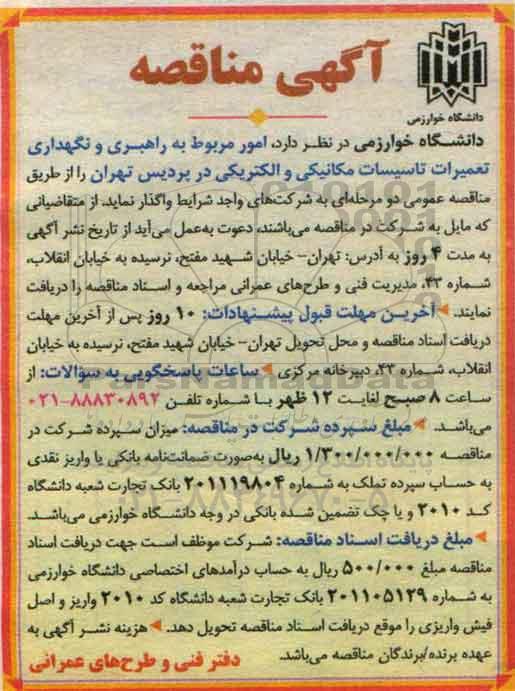 آگهی مناقصه
دانشگاه خوارزمی
دانشگاه خوارزمی در نظر دارد، امور مربوط به راهبری و نگهداری
تعمیرات تاسیسات مکانیکی و الکتریکی در پردیس تهران را از طریق
مناقصه عمومی دو مرحله‌ای به شرکت‌های واجد شرایط واگذار نماید. از متقاضیانی
که مایل به شرکت در مناقصه می‌باشند، دعوت به‌عمل می‌آید از تاریخ نشر آگهی
به مدت ۴ روز به آدرس: تهران- خیابان شهید مفتح، نرسیده به خیابان انقلاب،
شماره ۴۳، مدیریت فنی و طرح‌های عمرانی مراجعه و اسناد مناقصه را دریافت
نمایند. آخرین مهلت قبول پیشنهادات: ۱۰ روز پس از آخرین مهلت
دریافت اسناد مناقصه و محل تحویل تهران- خیابان شهید مفتح، نرسیده به خیابان
انقلاب، شماره ۴۳، دبیرخانه مرکزی ساعات پاسخگویی به سؤالات: از
ساعت ۸ صبح لغایت ۱۲ ظهر با شماره تلفن ۸۸۸۳۰۸۹۲-۰۲۱
می‌باشد. مبلغ سپرده شرکت در مناقصه: میزان سپرده شرکت در
مناقصه ۱/۳۰۰/۰۰۰/۰۰۰ ریال به‌صورت ضمانت‌نامه بانکی یا واریز نقدی
به حساب سپرده تملک به شماره ۲۰۱۱۱۹۸۰۴ بانک تجارت شعبه دانشگاه
کد ۲۰۱۰ و یا چک تضمین شده بانکی در وجه دانشگاه خوارزمی می‌باشد.
مبلغ دریافت اسناد مناقصه: شرکت موظف است جهت دریافت اسناد
مناقصه مبلغ ۵۰۰/۰۰۰ ریال به حساب درآمدهای اختصاصی دانشگاه خوارزمی
به شماره ۲۰۱۱۰۵۱۲۹ بانک تجارت شعبه دانشگاه کد ۲۰۱۰ واریز و اصل
فیش واریزی را موقع دریافت اسناد مناقصه تحویل دهد. هزینه نشر آگهی به
عهده برنده/برندگان مناقصه می‌باشد.
دفتر فنی و طرح‌های عمرانی
ParsNamadData